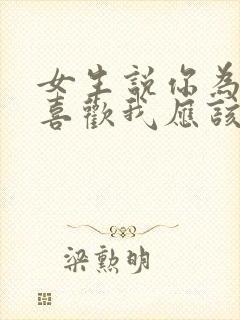 女生說你為
喜歡我應該
梁勲明